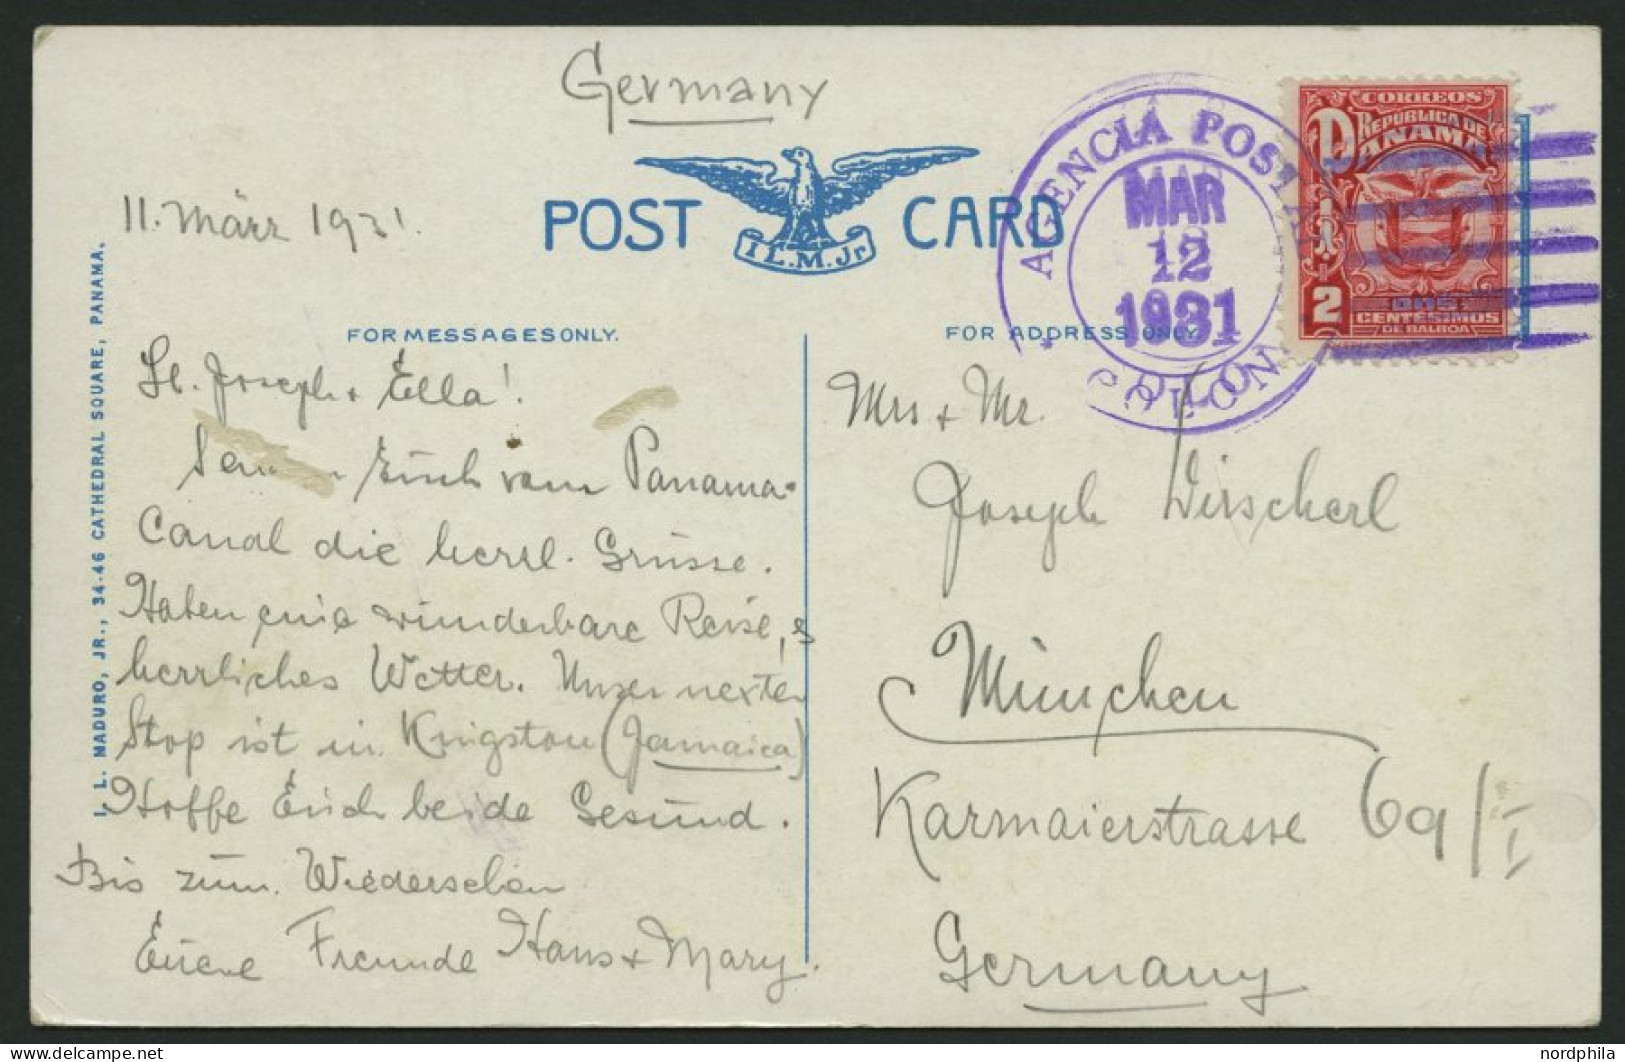 Germany
11. März 1931.
POST CARD
I.L.M.Jr
FOR MESSAGES ONLY.
FOR ADDRESS ONLY
AGENCIA POSTAL
MAR
12
1931
COLON
CORREOS
REPÚBLICA DE
PANAMA
2
DOS
CENTÉSIMOS
DE BALBOA
I. L. MADURO, JR., 34-46 CATHEDRAL SQUARE, PANAMA.
Lb. Joseph + Ella!
Euch vom Panama-
Canal die herzl. Grüsse.
Haben eine wunderbare Reise, es
herrliches Wetter. Unser nexter
Stop ist in Kingston (Jamaica)
Hoffe Euch beide Gesund.
Bis zum Wiedersehen
Euere Freunde Hans + Mary.
Mrs + Mr.
Joseph Wirscherl
München
Karmaierstrasse 69/I
Germany
nordphila